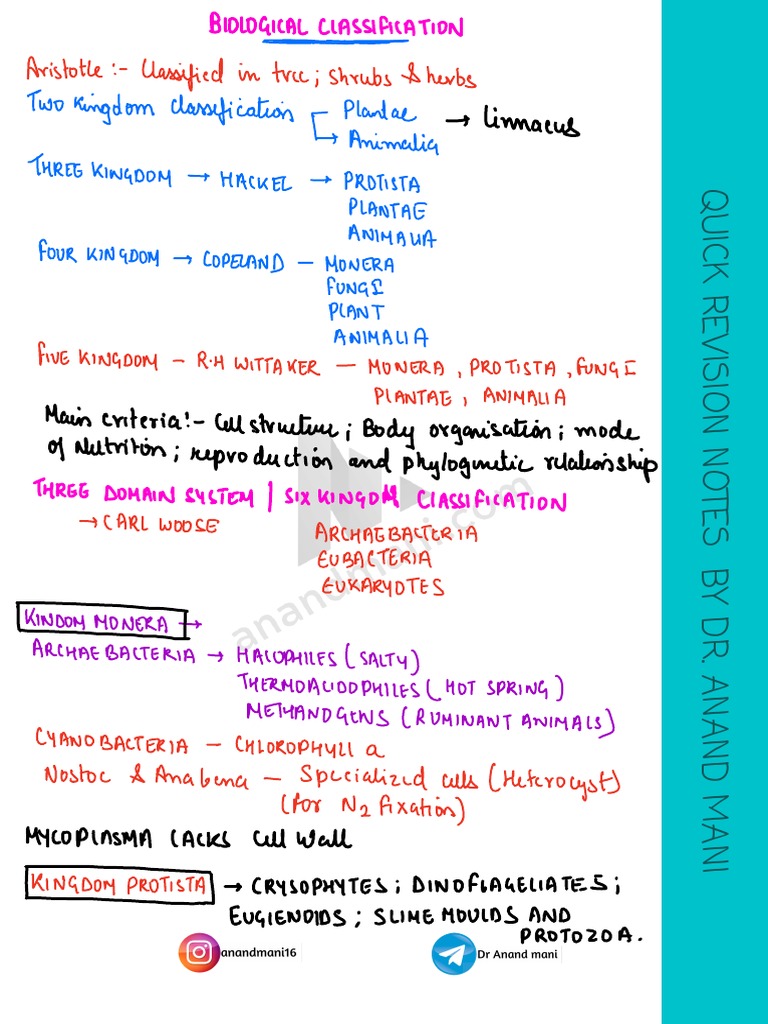 BIOLOGICAL CLASSIFICATION
Aristotle :- Classified in tree; shrubs & herbs
Two Kingdom classification Plantae → Linnaeus
→ Animalia
THREE KINGDOM → HACKEL → PROTISTA
PLANTAE
ANIMALIA
FOUR KINGDOM → COPELAND – MONERA
FUNGI
PLANT
ANIMALIA
FIVE KINGDOM – R.H WITTAKER – MONERA, PROTISTA, FUNGI
PLANTAE, ANIMALIA
Main criteria:- Cell structure; Body organisation; mode
of Nutrition; reproduction and phylogenetic relationship
THREE DOMAIN SYSTEM | SIX KINGDOM CLASSIFICATION
→ CARL WOOSE ARCHAEBACTERIA
EUBACTERIA
EUKARYOTES
KINDOM MONERA →
ARCHAEBACTERIA → HALOPHILES (SALTY)
THERMOACIDOPHILES (HOT SPRING)
METHANOGENS (RUMINANT ANIMALS)
CYANOBACTERIA – CHLOROPHYLL a
Nostoc & Anabena – Specialized cells (Heterocyst)
(for N2 fixation)
MYCOPLASMA LACKS Cell Wall
KINGDOM PROTISTA → CRYSOPHYTES; DINOFLAGELLATES;
EUGLENOIDS; SLIME MOULDS AND
PROTOZOA.
anandmani16
Dr Anand mani
QUICK REVISION NOTES BY DR. ANAND MANI
anandmani.com